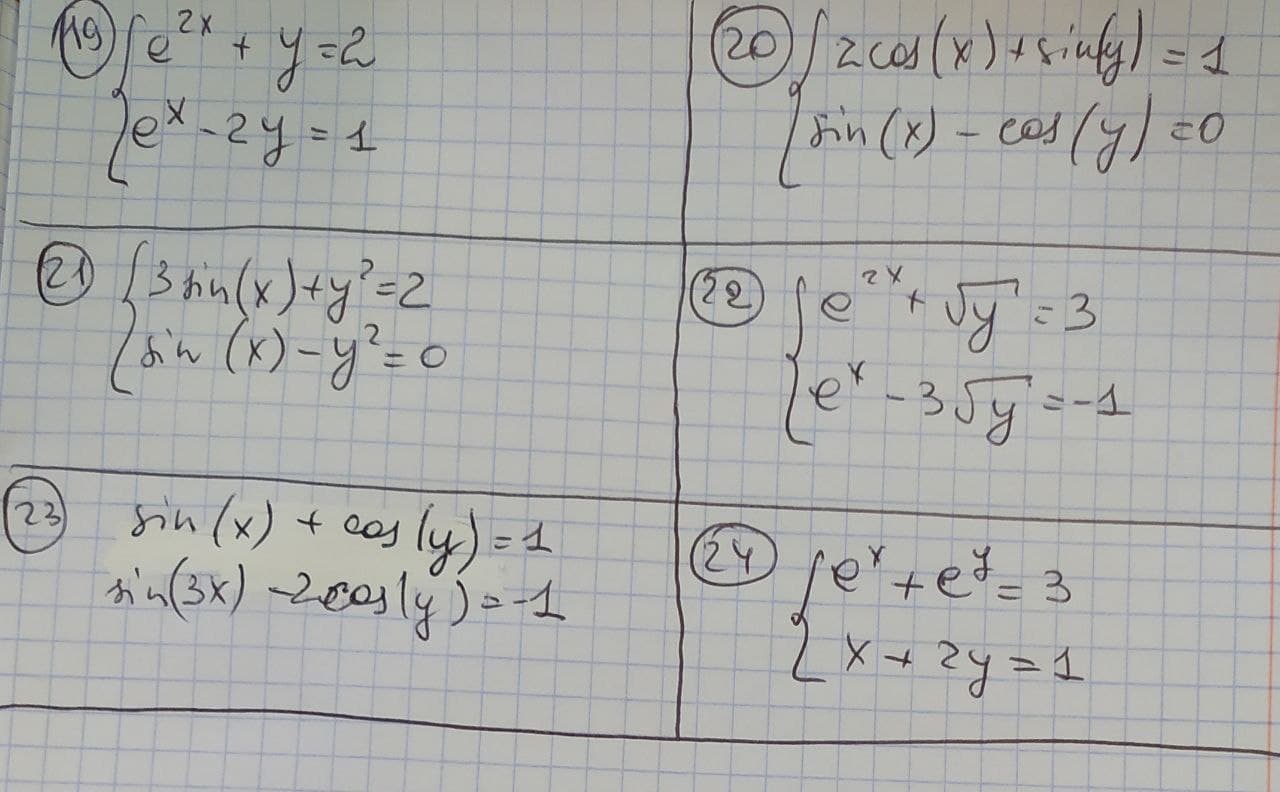 19 { e^{2x} + y = 2
e^x - 2y = 1
20 { 2cos(x) + sin(y) = 1
sin(x) - cos(y) = 0
21 { 3sin(x) + y² = 2
sin(x) - y² = 0
22 { e^{2x} + √y = 3
e^x - 3√y = -1
23 sin(x) + cos(y) = 1
sin(3x) - 2cos(y) = -1
24 { e^x + e^y = 3
x + 2y = 1